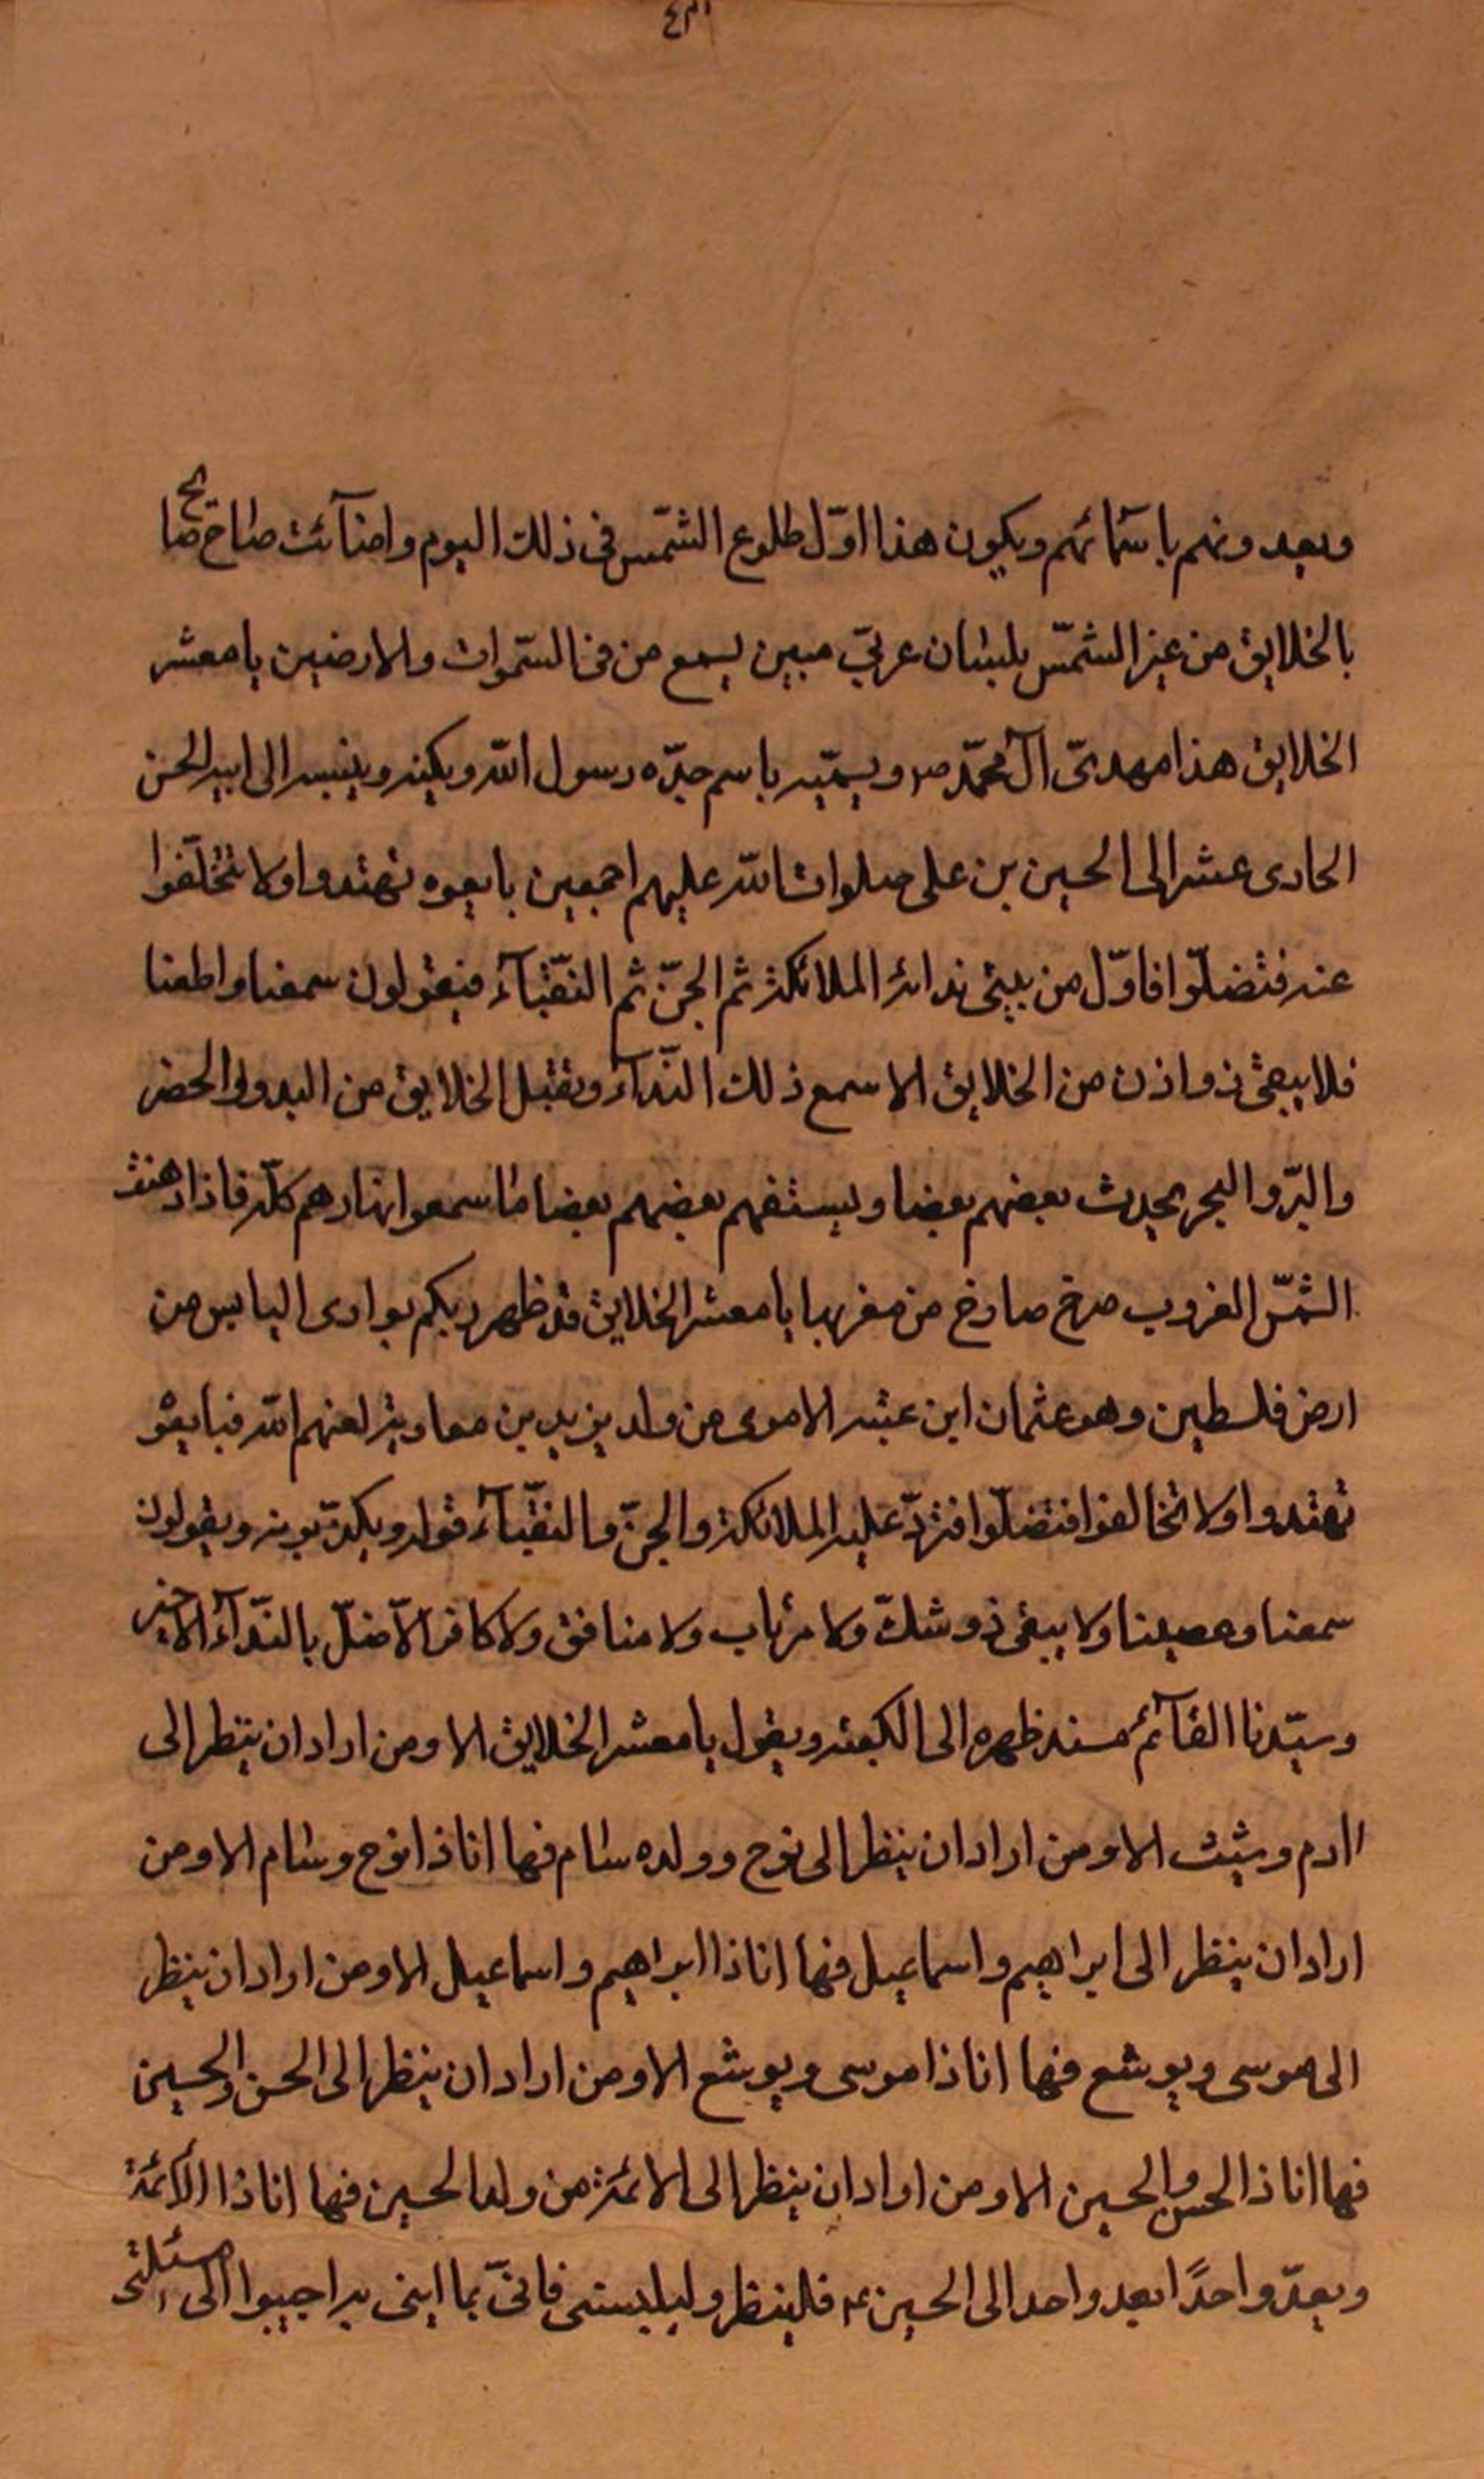 ٤٣١
ويعدونهم باسمآئهم ويكون هذا اوّل طلوع الشمّس فى ذلك اليوم واضآئت صاح صايح
بالخلايق من عين الشمّس بلسان عربىّ مبين يسمع من فى السّموات والارضين يا معشر
الخلايق هذا مهدىّ آل محمّد ص ويسمّيه باسم جدّه رسول الله ويكنيه وينسبه الى ابيه الحسن
الحادى عشر الى الحسين بن على صلوات الله عليهم اجمعين بايعوه تهتدوا ولا تتخلّفوا
عنه فتضلّوا فاوّل من يبئ ندائه الملائكة ثم الجنّ ثم النّقبآء فيقولون سمعنا واطعنا
فلا يبقى ذو اذن من الخلايق الا سمع ذلك النّدآء وتقبل الخلايق من البدو والحضر
والبرّ والبحر يحدث بعضهم بعضا ويستفهم بعضهم بعضا ما سمعوا نهارهم كلّه فاذا دهنت
الشمّس الغروب صرخ صارخ من مغربها يا معشر الخلايق قد ظهر ربكم بوادى اليابس من
ارض فلسطين وهو عثمان ابن عنبسه الاموى من ولد يزيد بن معاوية لعنهم الله فبايعو
تهتدوا ولا تخالفوا فتضلّوا فتردّ عليه الملائكة والجنّ والنقّبآء قوله ويكذّبونه ويقولون
سمعنا وعصينا ولا يبقى ذو شكّ ولا مرتاب ولا منافق ولا كافر الاّ ضلّ بالنّدآء الاخير
وسيّدنا القآئم مسند ظهره الى الكعبة ويقول يا معشر الخلايق الا ومن اراد ان ينظر الى
اادم وشيث الا ومن اراد ان ينظر الى نوح وولده سام فها انا ذا نوح وسام الا ومن
اراد ان ينظر الى ابراهيم واسماعيل فها انا ذا ابراهيم واسماعيل الا ومن اراد ان ينظر
الى موسى ويوشع فها انا ذا موسى ويوشع الا ومن اراد ان ينظر الى الحسن والحسين
فها انا ذا الحسن والحسين الا ومن اراد ان ينظر الى الائمة من ولد الحسين فها انا ذا الأئمّة
ويعدّ واحدًا بعد واحد الى الحسين ع فلينظر فانىّ بما به اجيبوا الى مسئلتى